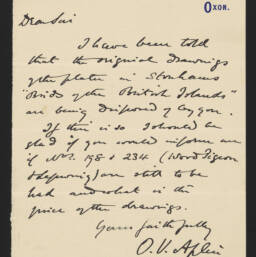 OXON.
Dear Sir
I have been told
that the original drawings
of the plates in
"Birds of the British Islands"
are being disposed of by you.
If this is so I should be
glad if you would inform me
if Nos. 198 & 234 (Wood Pigeon
& Lapwing) are still to be
had and what is the
price of the drawings.
Yours faithfully
O. V. Aplin